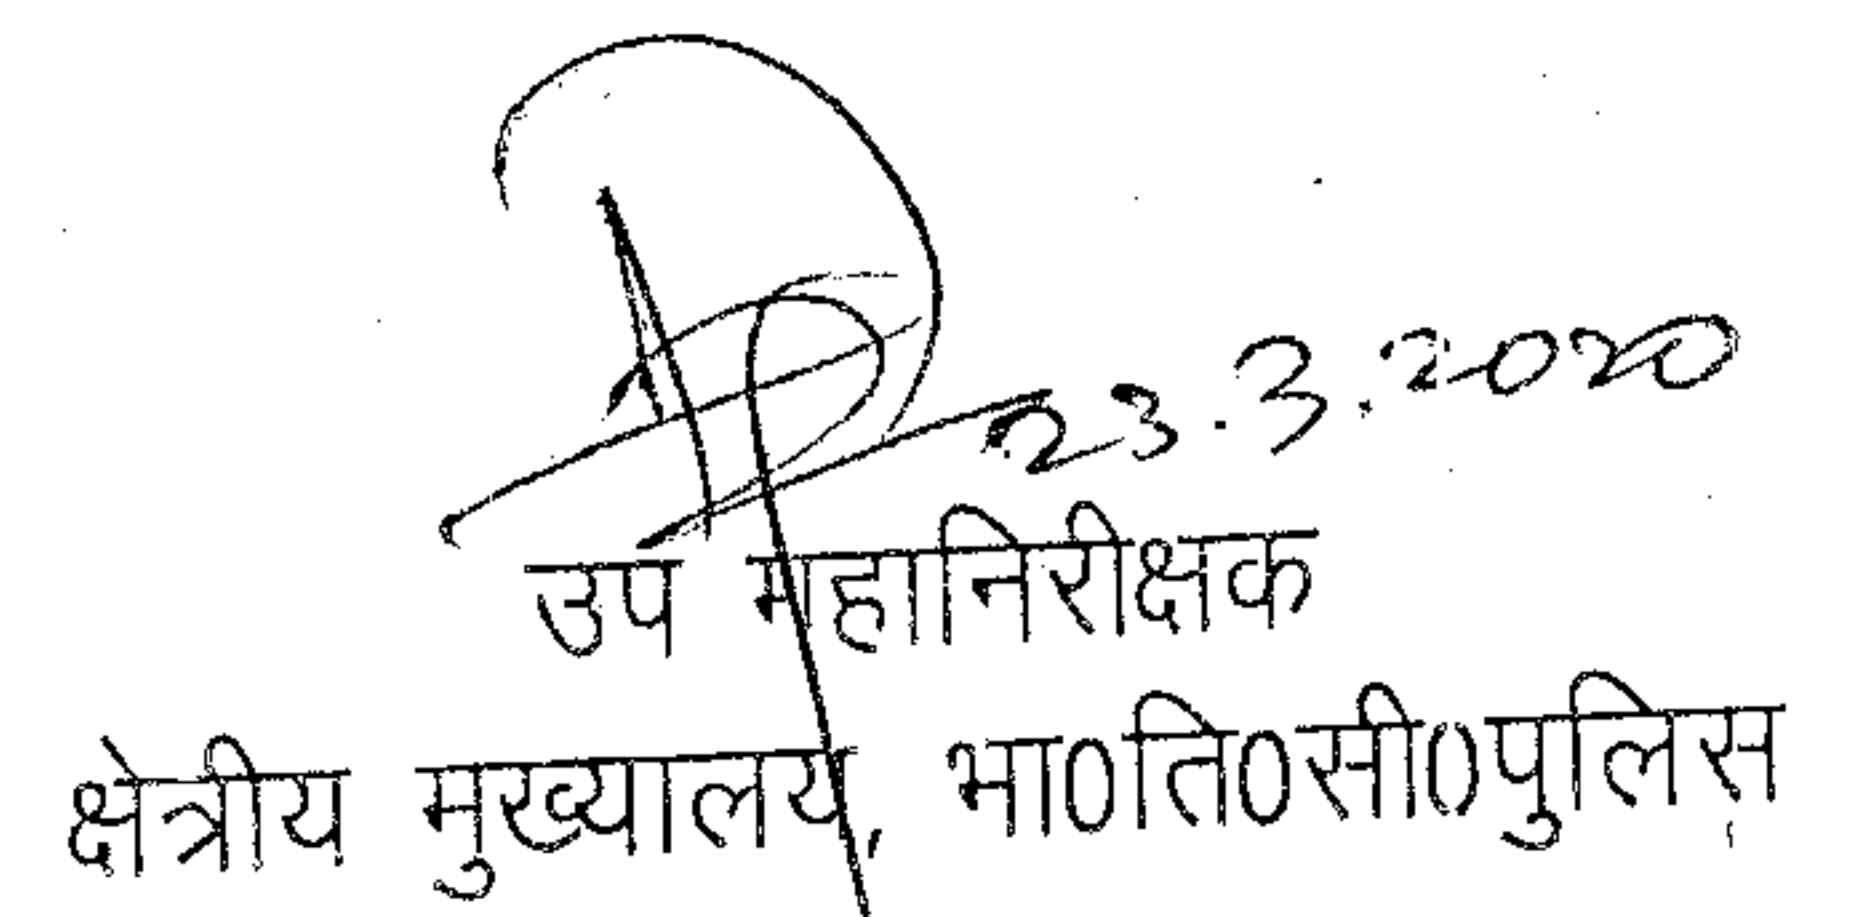 23.3.2020
उप महानिरीक्षक
क्षेत्रीय मुख्यालय, भा0ति0सी0पुलिस